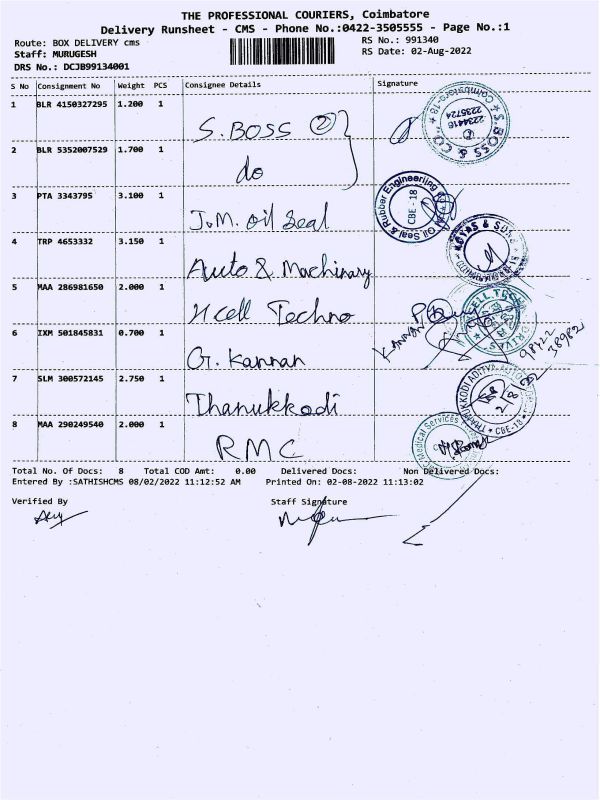 THE PROFESSIONAL COURIERS, Coimbatore
Delivery Runsheet - CMS - Phone No.:0422-3505555 - Page No.:1
Route: BOX DELIVERY cms
RS No.: 991340
Staff: MURUGESH
RS Date: 02-Aug-2022
DRS No.: DCJB99134001
S No Consignment No Weight PCS Consignee Details Signature
1 BLR 4150327295 1.200 1 S. BOSS 2
2 BLR 5352007529 1.700 1 do
3 PTA 3343795 3.100 1 J.M. Oil Seal
4 TRP 4653332 3.150 1 Auto & Machinary
5 MAA 286981650 2.000 1 Ncell Techno
6 IXM 501845831 0.700 1 G. Kannan
7 SLM 300572145 2.750 1 Thanukkodi
8 MAA 290249540 2.000 1 RMC
S. BOSS & CO
Coimbatore-18
2234416
2235724
Oil Seal & Rubber Engineering
CBE - 18
KANNAN
98422
38982
THANUKKODI ADITYA AUTO
CBE-18
Medical Services
Total No. Of Docs: 8 Total COD Amt: 0.00 Delivered Docs: Non Delivered Docs:
Entered By :SATHISHCMS 08/02/2022 11:12:52 AM Printed On: 02-08-2022 11:13:02
Verified By Staff Signature